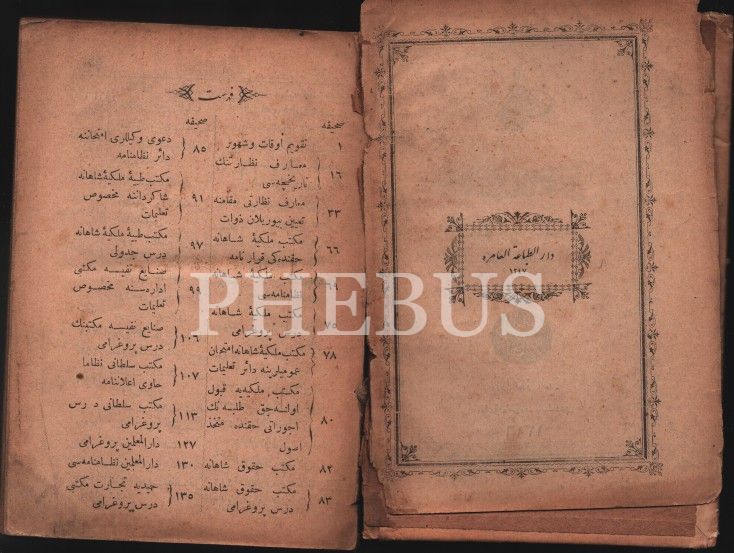 فهرست
صحیفه
١ تقویم اوقات و شهور
١٦ معارف نظارتنك
تاریخچه‌سی
٣٣ معارف نظارتی مقامنه
تعیین بیوریلان ذوات
٦٦ مکتب ملکیهٔ شاهانه
حقنده‌کی قرارنامه
٦٩ مکتب ملکیهٔ شاهانه
نظامنامه‌سی
٧٥ مکتب ملکیهٔ شاهانه
درس پروغرامی
٧٨ مکتب ملکیهٔ شاهانه امتحان
عمومیلرینه دائر تعلیمات
٨٠ مکتب ملکیه‌یه قبول
اولنه‌جق طلبه‌نك
اجوراتی حقنده متخذ
اصول
٨٢ مکتب حقوق شاهانه
٨٣ مکتب حقوق شاهانه
درس پروغرامی
صحیفه
٨٥ دعوی وکیللری امتحاننه
دائر نظامنامه
٩١ مکتب طبیهٔ ملکیهٔ شاهانه
شاکرداننه مخصوص
تعلیمات
٩٧ مکتب طبیهٔ ملکیهٔ شاهانه
درس جدولی
صنایع نفیسه مکتبی
اداره‌سنه مخصوص
تعلیمات
١٠٦ صنایع نفیسه مکتبنك
درس پروغرامی
١٠٧ مکتب سلطانی نظاما
حاوی اعلاننامه
١١٣ مکتب سلطانی درس
پروغرامی
١٢٧ دارالمعلمین پروغرامی
١٣٠ دارالمعلمین نظامنامه‌سی
١٣٥ حمیدیه تجارت مکتبی
درس پروغرامی
دار الطباعة العامره
PHEBUS